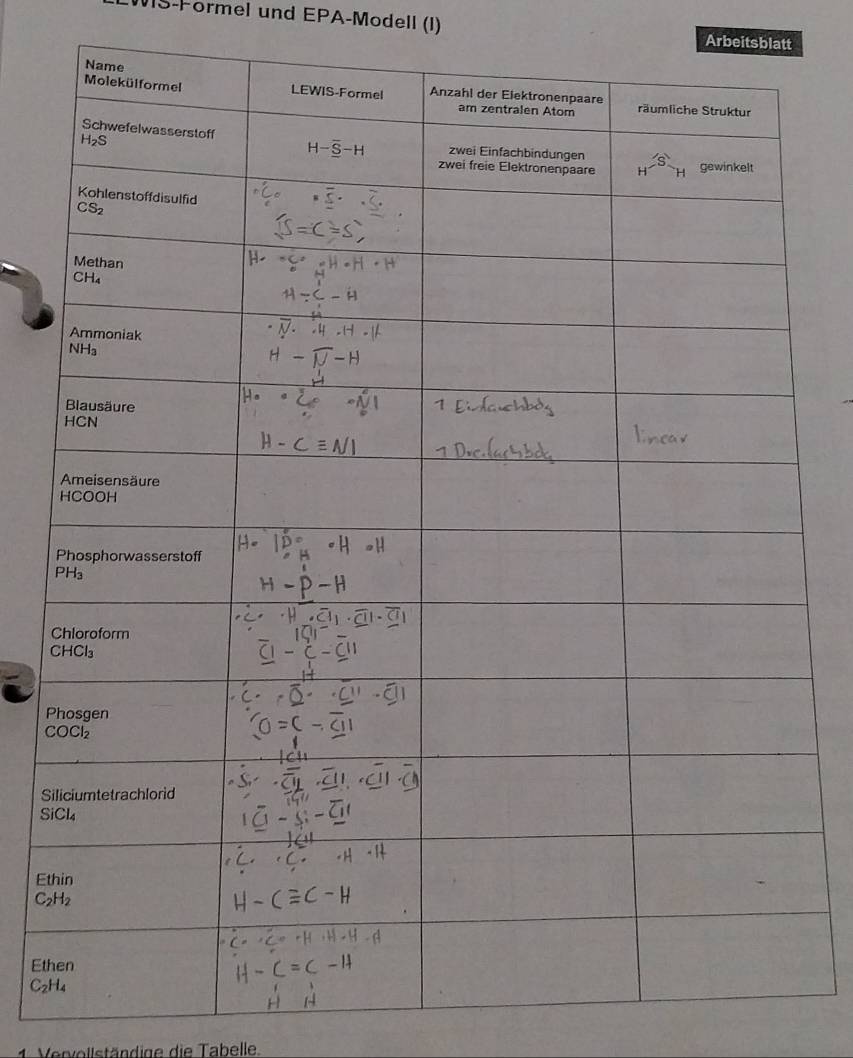 LEWIS-Formel und EPA-Modell (I)
Arbeitsblatt
Name
Molekülformel
LEWIS-Formel
Anzahl der Elektronenpaare
am zentralen Atom
räumliche Struktur
Schwefelwasserstoff
H₂S
H–S̲̅–H
zwei Einfachbindungen
zwei freie Elektronenpaare
H S H gewinkelt
Kohlenstoffdisulfid
CS₂
·C· ·S· ·S·
S=C=S
Methan
CH₄
H· ·C· ·H ·H ·H
H
H–C–H
H
Ammoniak
NH₃
·N· ·H ·H ·H
H–N–H
H
Blausäure
HCN
H· ·C· ·N|
H–C≡N|
1 Einfachbdg
1 Dreifachbdg
linear
Ameisensäure
HCOOH
Phosphorwasserstoff
PH₃
H· |P· ·H ·H
H
H–P–H
Chloroform
CHCl₃
·C· ·H ·Cl| ·Cl| ·Cl|
|Cl|
Cl–C–Cl|
H
Phosgen
COCl₂
·C· ·O· ·Cl| ·Cl|
O=C–Cl|
|Cl|
Siliciumtetrachlorid
SiCl₄
·Si· ·Cl| ·Cl| ·Cl| ·Cl|
|Cl|
|Cl–Si–Cl|
|Cl|
Ethin
C₂H₂
·C· ·C· ·H ·H
H–C≡C–H
Ethen
C₂H₄
·C· ·C· ·H ·H ·H ·H
H–C=C–H
H H
1. Vervollständige die Tabelle.